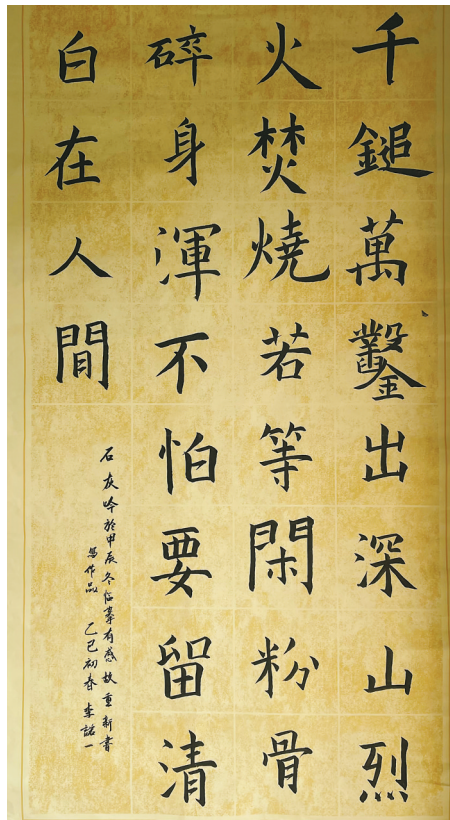 千鎚萬鑿出深山烈
火焚燒若等閑粉骨
碎身渾不怕要留清
白在人間
石灰吟於甲辰冬临摹有感故重新書
寫作品 乙巳初春 李諾一